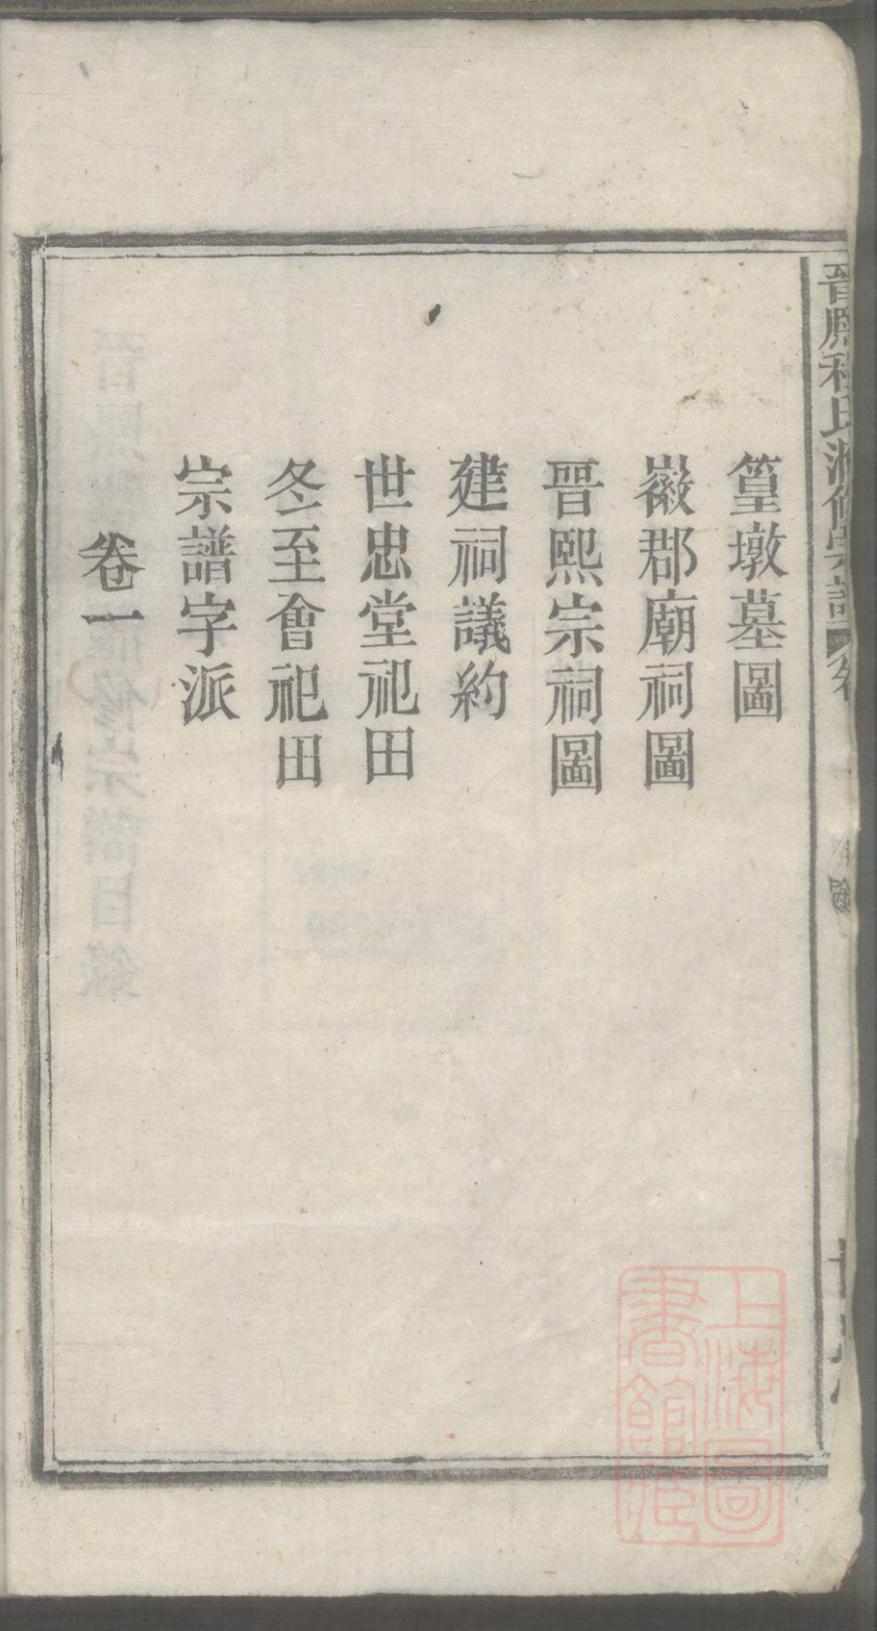 晉熙程氏湖修宗譜
篁墩墓圖
嶶郡廟祠圖
晋熙宗祠圖
建祠議約
世忠堂祀田
冬至會祀田
宗譜字派
卷一
上海圖
書館藏